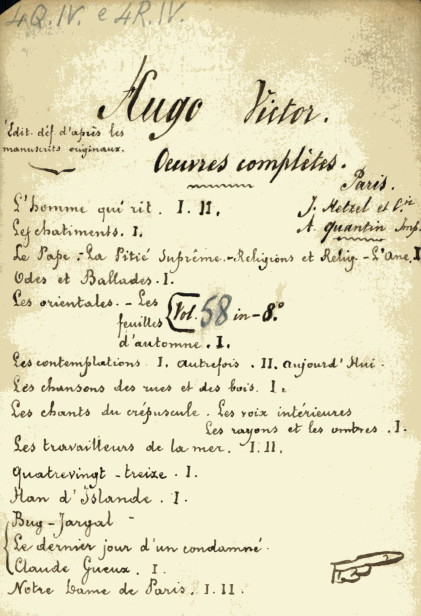 4Q.IV. e 4R.IV.
Hugo Victor.
Édit. déf. d'après les
manuscrits originaux.
Oeuvres complètes.
Paris.
J. Hetzel et C.ie
A. Quantin Imp.
L'homme qui rit. I. II.
Les chatiments. I.
Le Pape.-La Pitié Suprême.-Religions et Relig-L'Ane.I
Odes et Ballades. I.
Les orientales. - Les
feuilles
d'automne. I.
Vol. 58 in-8.°
Les contemplations I. autrefois. II. aujourd'Hui.
Les chansons des rues et des bois. I.
Les chants du crépuscule. Les voix intérieures
Les rayons et les ombres. I.
Les travailleurs de la mer. I. II.
Quatrevingt-treize. I.
Han d'Islande. I.
Bug-Jargal -
Le dernier jour d'un condamné.
Claude Gueux. I.
Notre Dame de Paris. I. II.